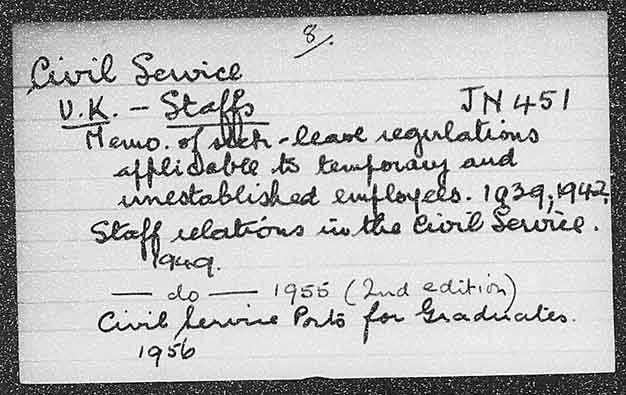 8/.
Civil Service
U.K. - Staffs JN 451
Memo. of sick-leave regulations
applicable to temporary and
unestablished employees. 1939, 1942.
Staff relations in the Civil Service.
1949.
— do — 1955 (2nd edition)
Civil Service Posts for Graduates.
1956